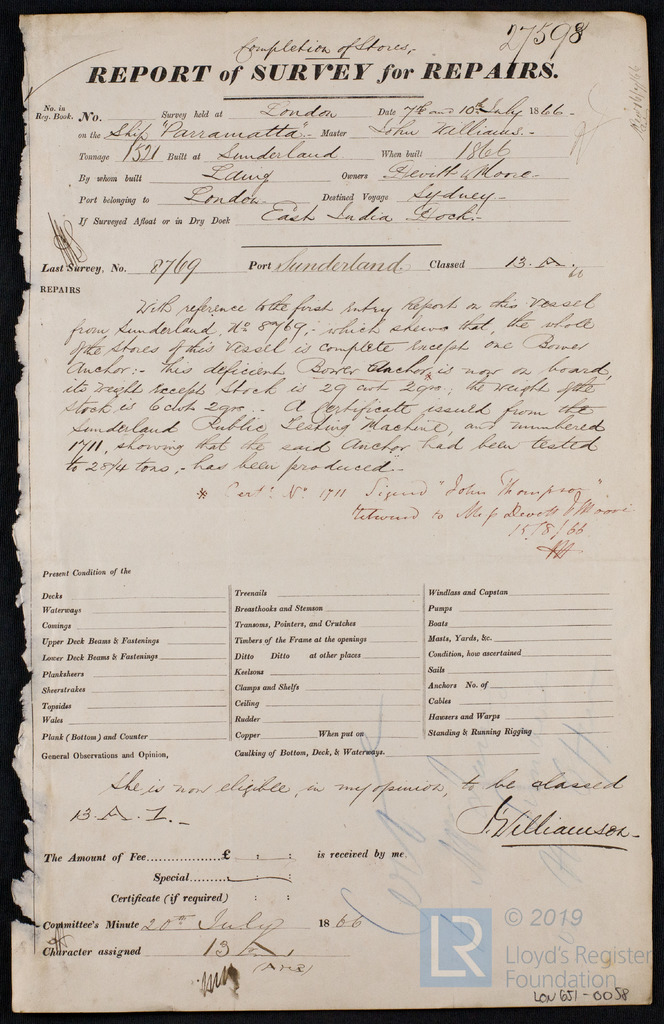 27598
Completion of Stores,
REPORT of SURVEY for REPAIRS.
No. in Reg. Book. No. Survey held at London Date 7th and 10th July 1866
on the Ship "Parramatta" Master John Williams
Tonnage 1521 Built at Sunderland When built 1866
By whom built Laing Owners Devitt & Moore
Port belonging to London Destined Voyage Sydney
If Surveyed Afloat or in Dry Dock East India Dock
Last Survey, No. 8769 Port Sunderland Classed 13. A.
REPAIRS
With reference to the first Entry Report on this Vessel
from Sunderland, No 8769, which shews that, the whole
of the stores of this Vessel is complete except one Bower
Anchor:- this deficient Bower Anchor is now on board,
its weight except Stock is 29 cwt 2 qrs.; the weight of the
stock is 6 cwt 2 qrs. A Certificate issued from the
Sunderland Public Testing Machine, and numbered
1711, showing that the said Anchor had been tested
to tons, has been produced.
* Cert. No 1711 Signed "John Thompson"
returned to Devitt & Moore
15/8/66
Present Condition of the
Decks Treenails Windlass and Capstan
Waterways Breasthooks and Stemson Pumps
Comings Transoms, Pointers, and Crutches Boats
Upper Deck Beams & Fastenings Timbers of the Frame at the openings Masts, Yards, &c.
Lower Deck Beams & Fastenings Ditto Ditto at other places Condition, how ascertained
Planksheers Keelsons Sails
Sheerstrakes Clamps and Shelfs Anchors No. of
Topsides Ceiling Cables
Wales Rudder Hawsers and Warps
Plank (Bottom) and Counter Copper When put on Standing & Running Rigging
General Observations and Opinion, Caulking of Bottom, Deck, & Waterways.
She is now eligible, in my opinion, to be classed
13. A. 1.
J. Williamson
The Amount of Fee £ : : is received by me,
Special
Certificate (if required) : :
Committee's Minute 20th July 1866
Character assigned 13 A 1
LR © 2019
Lloyd's Register
Foundation
LON 651-0058